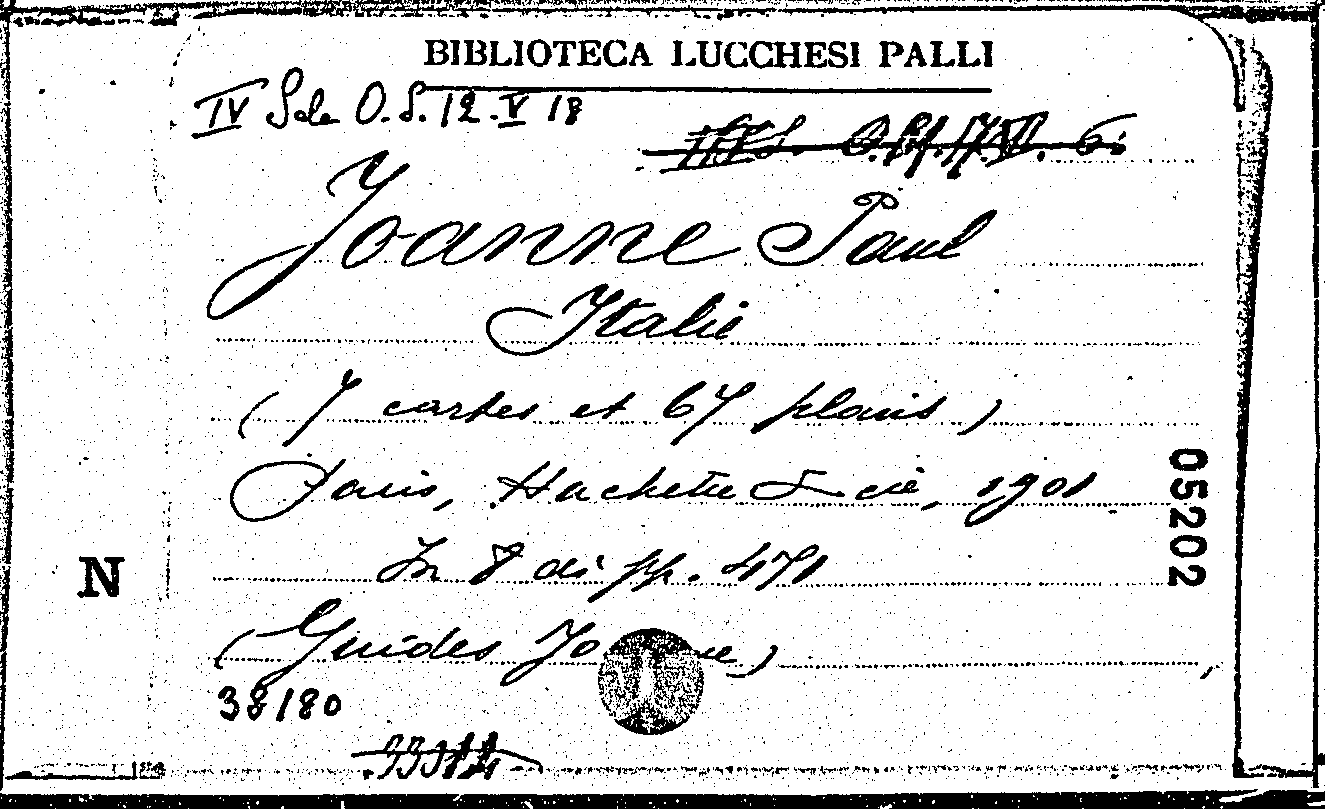 BIBLIOTECA LUCCHESI PALLI
IV Sala O.S. 12. V 18
Joanne Paul
Italie
( 7 cartes et 67 plans )
Paris, Hachette & cie, 1901
In 8 di pp. 471
(Guides Jo
38180
N
05202